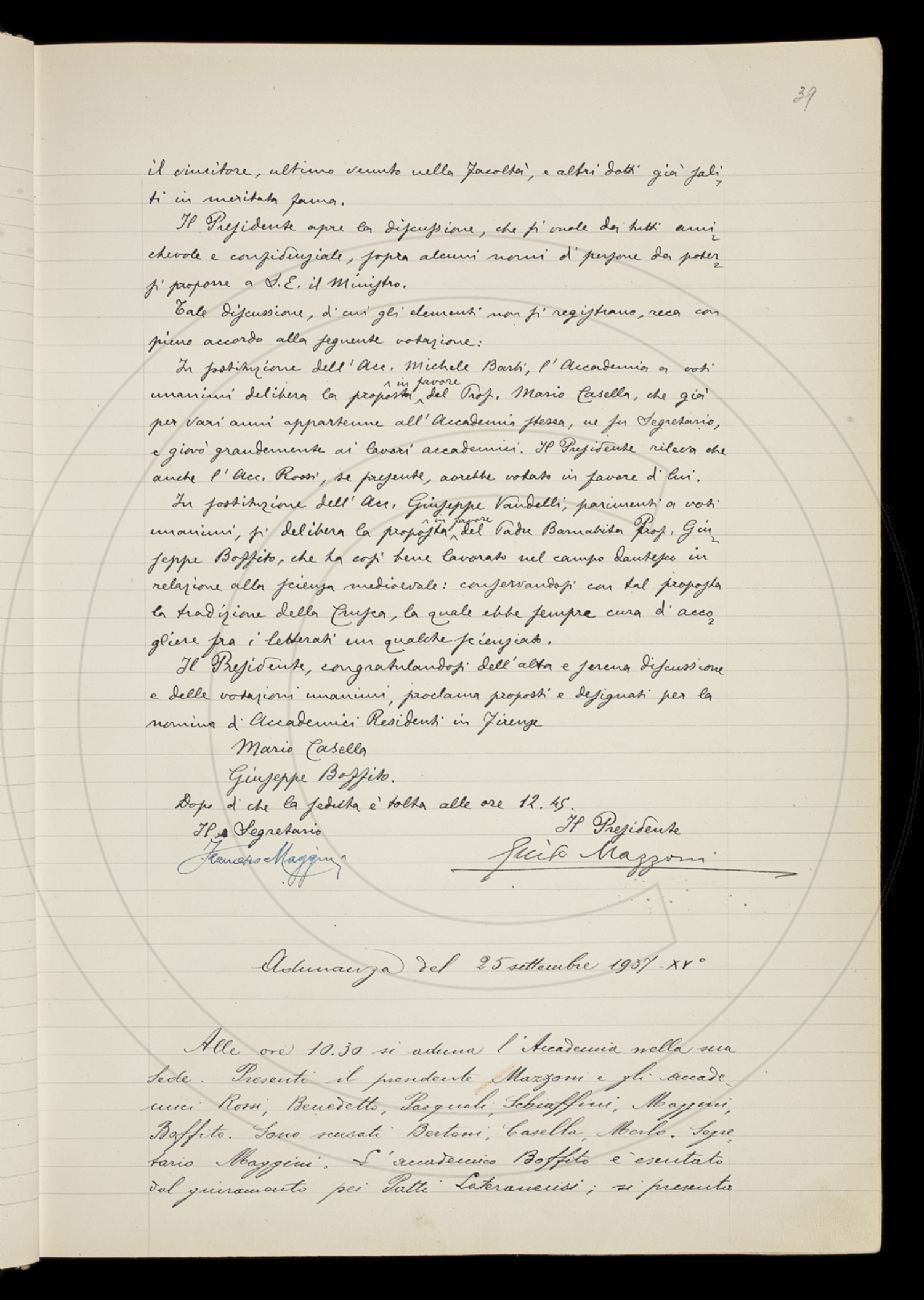 39
il vincitore, ultimo venuto nella Facoltà, e altri dotti già sali-
ti in meritata fama.
Il Presidente apre la discussione, che si vuole da tutti ami-
chevole e confidenziale, sopra alcuni nomi di persone da poter-
si proporre a S.E. il Ministro.
Tale discussione, di cui gli elementi non si registrano, reca con
pieno accordo alla seguente votazione:
In sostituzione dell'Acc. Michele Barbi, l'Accademia a voti
unanimi delibera la proposta in favore del Prof. Mario Casella, che già
per vari anni appartenne all'Accademia stessa, ne fu Segretario,
e giovò grandemente ai lavori accademici. Il Presidente rileva che
anche l'Acc. Rossi, se presente, avrebbe votato in favore di lui.
In sostituzione dell'Acc. Giuseppe Vandelli, parimenti a voti
unanimi, si delibera la proposta in favore del Padre Barnabita Prof. Giu-
seppe Boffito, che ha così bene lavorato nel campo dantesco in
relazione alla scienza medioevale: conservandosi con tal proposta
la tradizione della Crusca, la quale ebbe sempre cura d'acco-
gliere fra i letterati un qualche scienziato.
Il Presidente, congratulandosi dell'alta e serena discussione
e delle votazioni unanimi, proclama proposti e designati per la
nomina di Accademici Residenti in Firenze
Mario Casella
Giuseppe Boffito.
Dopo di che la seduta è tolta alle ore 12.45.
Il Segretario Il Presidente
Francesco Maggini Guido Mazzoni
Adunanza del 25 settembre 1937-XV°
Alle ore 10.30 si aduna l'Accademia nella sua
sede. Presenti il presidente Mazzoni e gli accade-
mici Rossi, Benedetto, Pasquali, Schiaffini, Maggini,
Boffito. Sono scusati Bertoni, Casella, Merlo. Segre-
tario Maggini. L'accademico Boffito è esentato
dal giuramento pei Patti Lateranensi; si presenta